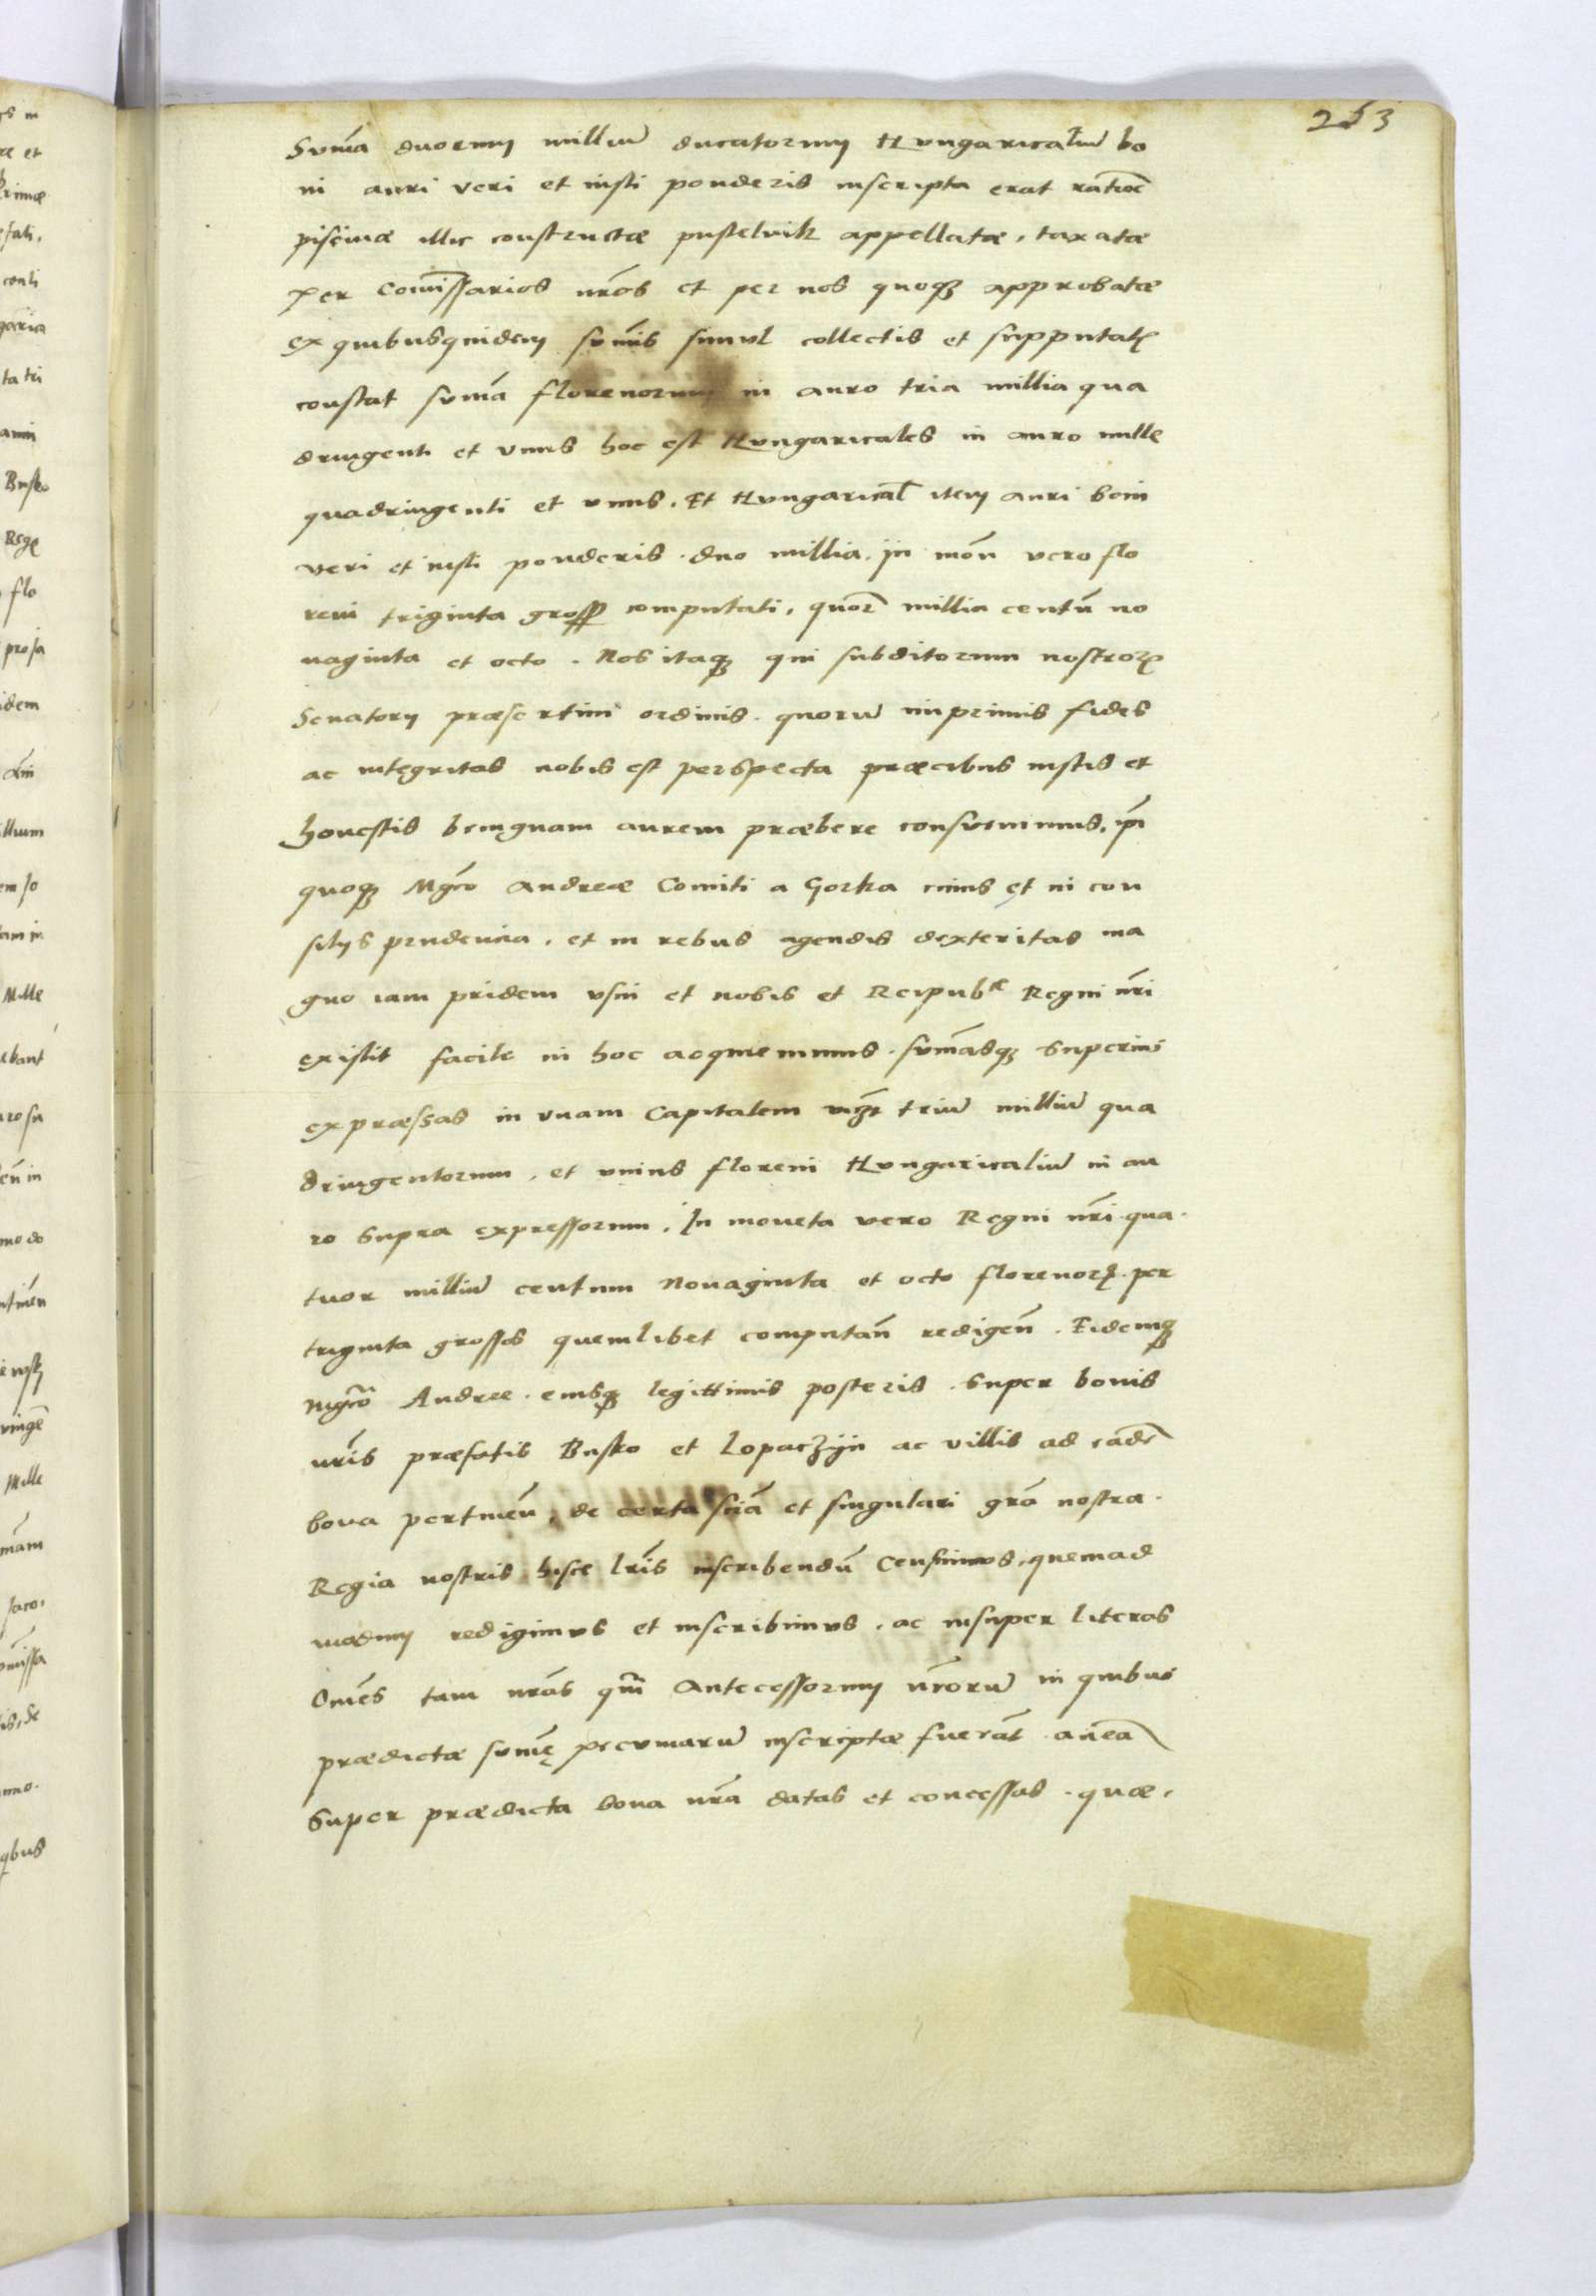 253
Sum̃a duorum milliũ ducatorum Hungaricaliũ bo
ni auri veri et iusti ponderis inscripta erat ratiõe
piscinæ illic constructæ pustelnik appellatæ, taxatæ
per Com̃issarios nr̃os et per nos quoqꝫ approbatæ
ex quibusquidem sum̃is simul collectis et supputatꝭ
constat sum̃a florenorum in auro tria millia qua
dringenti et vnus hoc est Hungaricales in auro mille
quadringenti et vnus. Et Hungarical̃ item auri boni
veri et iusti ponderis. duo millia. in moñ vero flo
reni triginta gross̃ computati, quor̃ millia centũ no
naginta et octo. Nos itaqꝫ qui subditorum nostrorꝫ
Senatorij præsertim ordinis. quorũ inprimis fides
ac integritas nobis est perspecta præcibus iustis et
honestis benignam aurem præbere consueuimus. ip̃i
quoqꝫ Mgco Andreæ Comiti a Gorka cuius et in con
silijs prudencia, et in rebus agendis dexteritas ma
gno iam pridem vsui et nobis et Reipubcæ Regni nr̃i
existit facile in hoc acquieuimus. sum̃asqꝫ superius
expræssas in vnam Capitalem vizt triũ milliũ qua
dringentorum, et vnius floreni Hungaricaliũ in au
ro supra expressorum. In moneta vero Regni nr̃i qua.
tuor milliũ centum Nonaginta et octo florenorꝫ. per
triginta grossos quemlibet computañ redigeñ. Eidemqꝫ
mgco Andree. eiusqꝫ legittimis posteris. super bonis
nr̃is præfatis Busko et Lopaczijn ac villis ad eadẽ
bona pertineñ, de certa sciã et singulari gr̃a nostra.
Regia nostris hisce lr̃is inscribendũ Censuimus, quemad
modum redigimus et inscribimus, ac insuper literas
Om̃es tam nr̃as qm̃ Antecessorum nr̃orũ in quibus
prædictæ sum̃ę pecuniarũ inscriptæ fuerãt antea
super prædicta bona nr̃a datas et concessas. quæ.